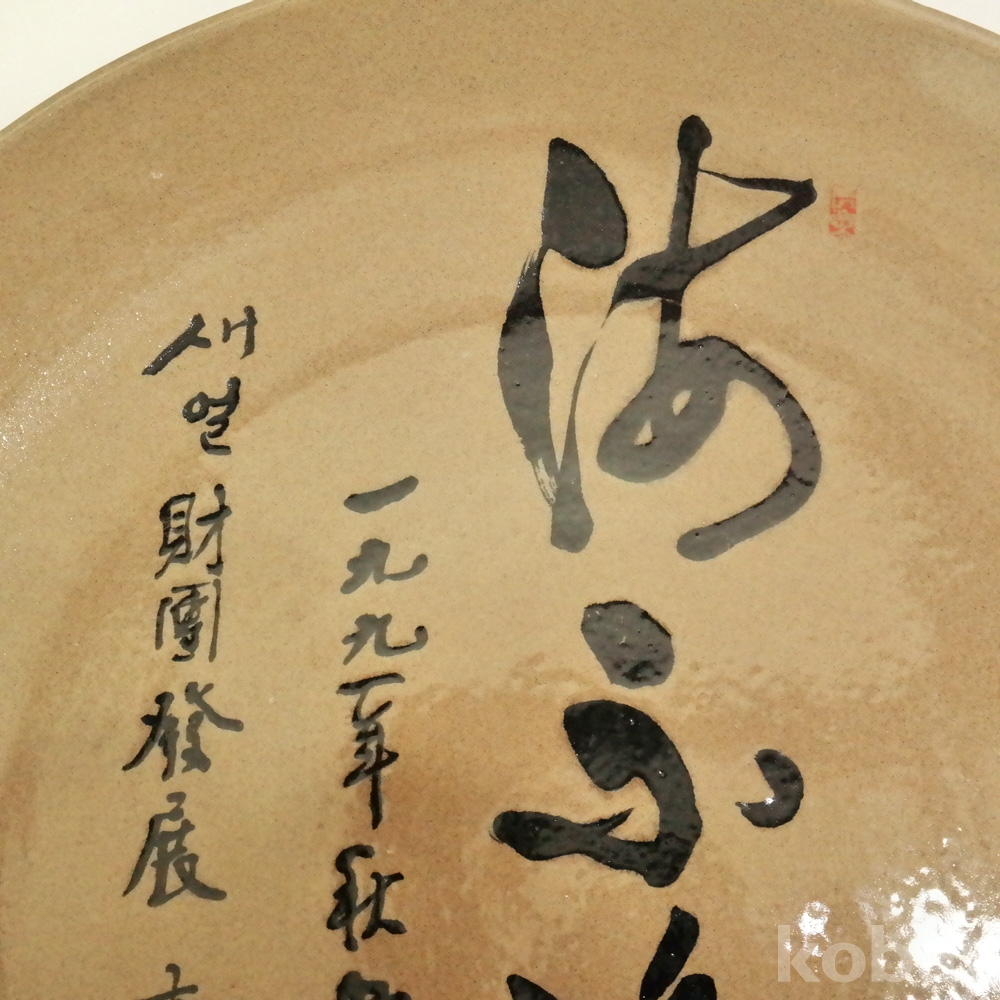 海不
一九九一年秋
새얼財團發展
kob